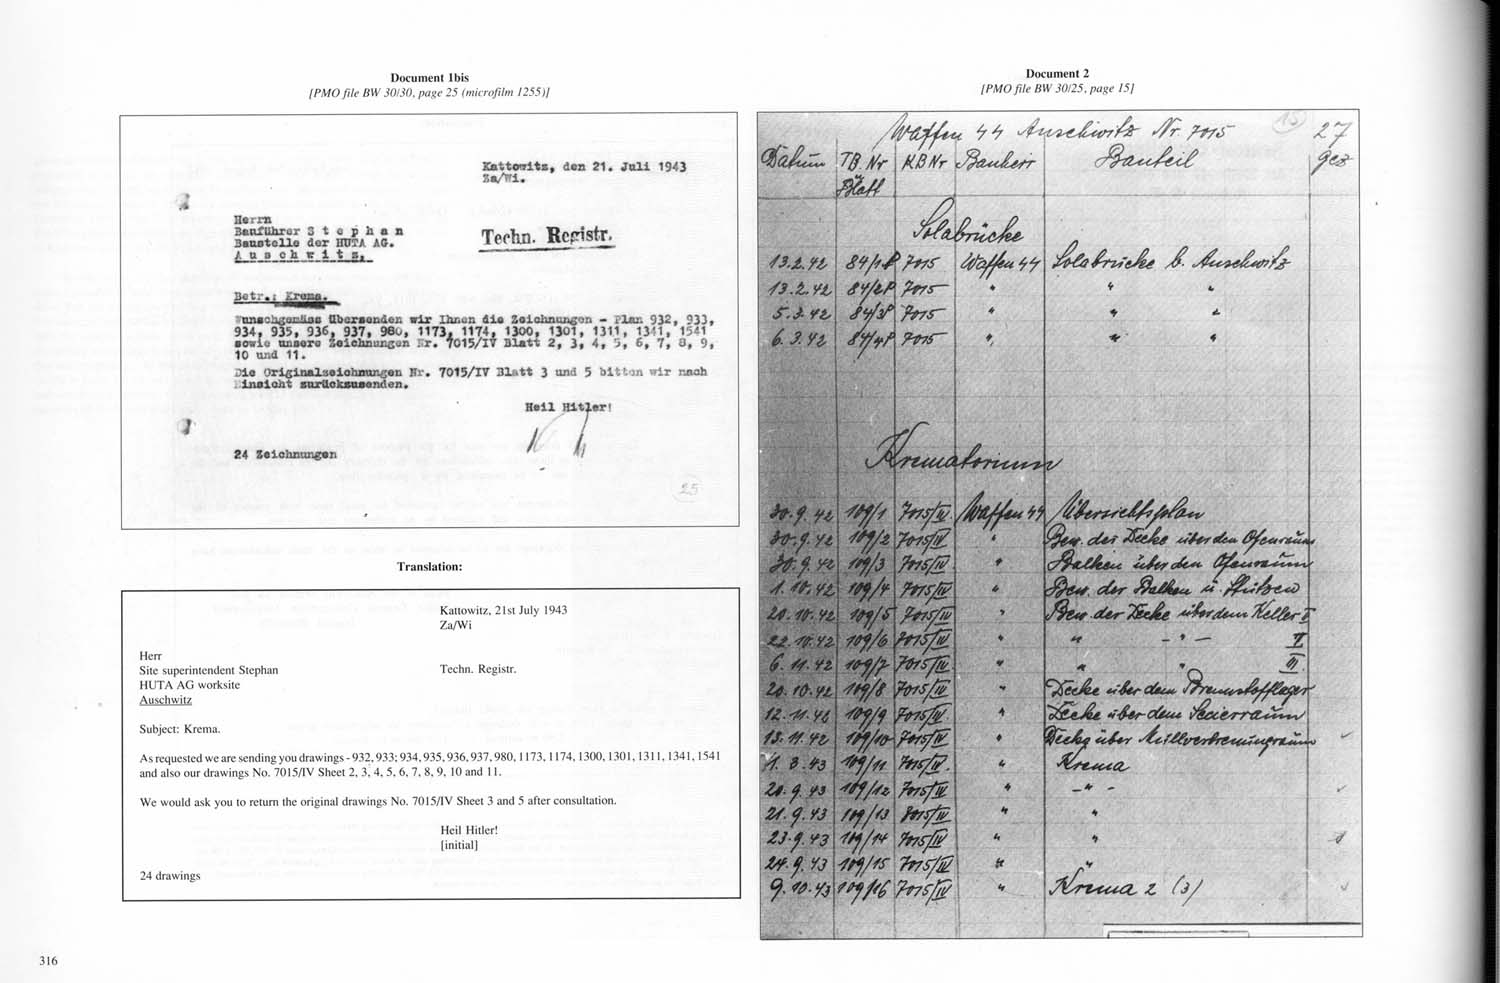 Document 1bis
[PMO file BW 30/30, page 25 (microfilm 1255)]
Kattowitz, den 21. Juli 1943
Za/Wi.
Herrn
Bauführer S t e p h a n
Baustelle der HUTA AG.
A u s c h w i t z.
Techn. Registr.
Betr.: Krema.
Wunschgemäss übersenden wir Ihnen die Zeichnungen - Plan 932, 933,
934, 935, 936, 937, 980, 1173, 1174, 1300, 1301, 1311, 1341, 1541
sowie unsere Zeichnungen Nr. 7015/IV Blatt 2, 3, 4, 5, 6, 7, 8, 9,
10 und 11.
Die Originalzeichnungen Nr. 7015/IV Blatt 3 und 5 bitten wir nach
Einsicht zurückzusenden.
Heil Hitler!
24 Zeichnungen
25
Translation:
Kattowitz, 21st July 1943
Za/Wi
Herr
Site superintendent Stephan
Techn. Registr.
HUTA AG worksite
Auschwitz
Subject: Krema.
As requested we are sending you drawings - 932, 933; 934, 935, 936, 937, 980, 1173, 1174, 1300, 1301, 1311, 1341, 1541
and also our drawings No. 7015/IV Sheet 2, 3, 4, 5, 6, 7, 8, 9, 10 and 11.
We would ask you to return the original drawings No. 7015/IV Sheet 3 and 5 after consultation.
Heil Hitler!
[initial]
24 drawings
316
Document 2
[PMO file BW 30/25, page 15]
Waffen SS Auschwitz Nr. 7015 15 27
Datum TB. Nr K.B Nr Bauherr Bauteil gez
Blatt
Solabrücke
13.2.42 84/1P 7015 Waffen SS Solabrücke b. Auschwitz
13.2.42 84/2P 7015 " " "
5.3.42 84/3P 7015 " " "
6.3.42 84/4P 7015 " " "
Krematorium
30.9.42 109/1 7015/IV Waffen SS Übersichtsplan
30.9.42 109/2 7015/IV " Bew. der Decke über den Ofenraum
30.9.42 109/3 7015/IV " Balken über den Ofenraum
1.10.42 109/4 7015/IV " Bew. der Balken u. Stützen
20.10.42 109/5 7015/IV " Bew. der Decke über dem Keller I
22.10.42 109/6 7015/IV " " - " - II
6.11.42 109/7 7015/IV " " " III.
20.10.42 109/8 7015/IV " Decke über dem Brennstofflager
12.11.42 109/9 7015/IV " Decke über dem Sezierraum
13.11.42 109/10 7015/IV " Decke über Müllverbrennungsraum
11.3.43 109/11 7015/IV " Krema
20.9.43 109/12 7015/IV " - " -
21.9.43 109/13 7015/IV " "
23.9.43 109/14 7015/IV " "
24.9.43 109/15 7015/IV " "
9.10.43 109/16 7015/IV " Krema 2 (3)